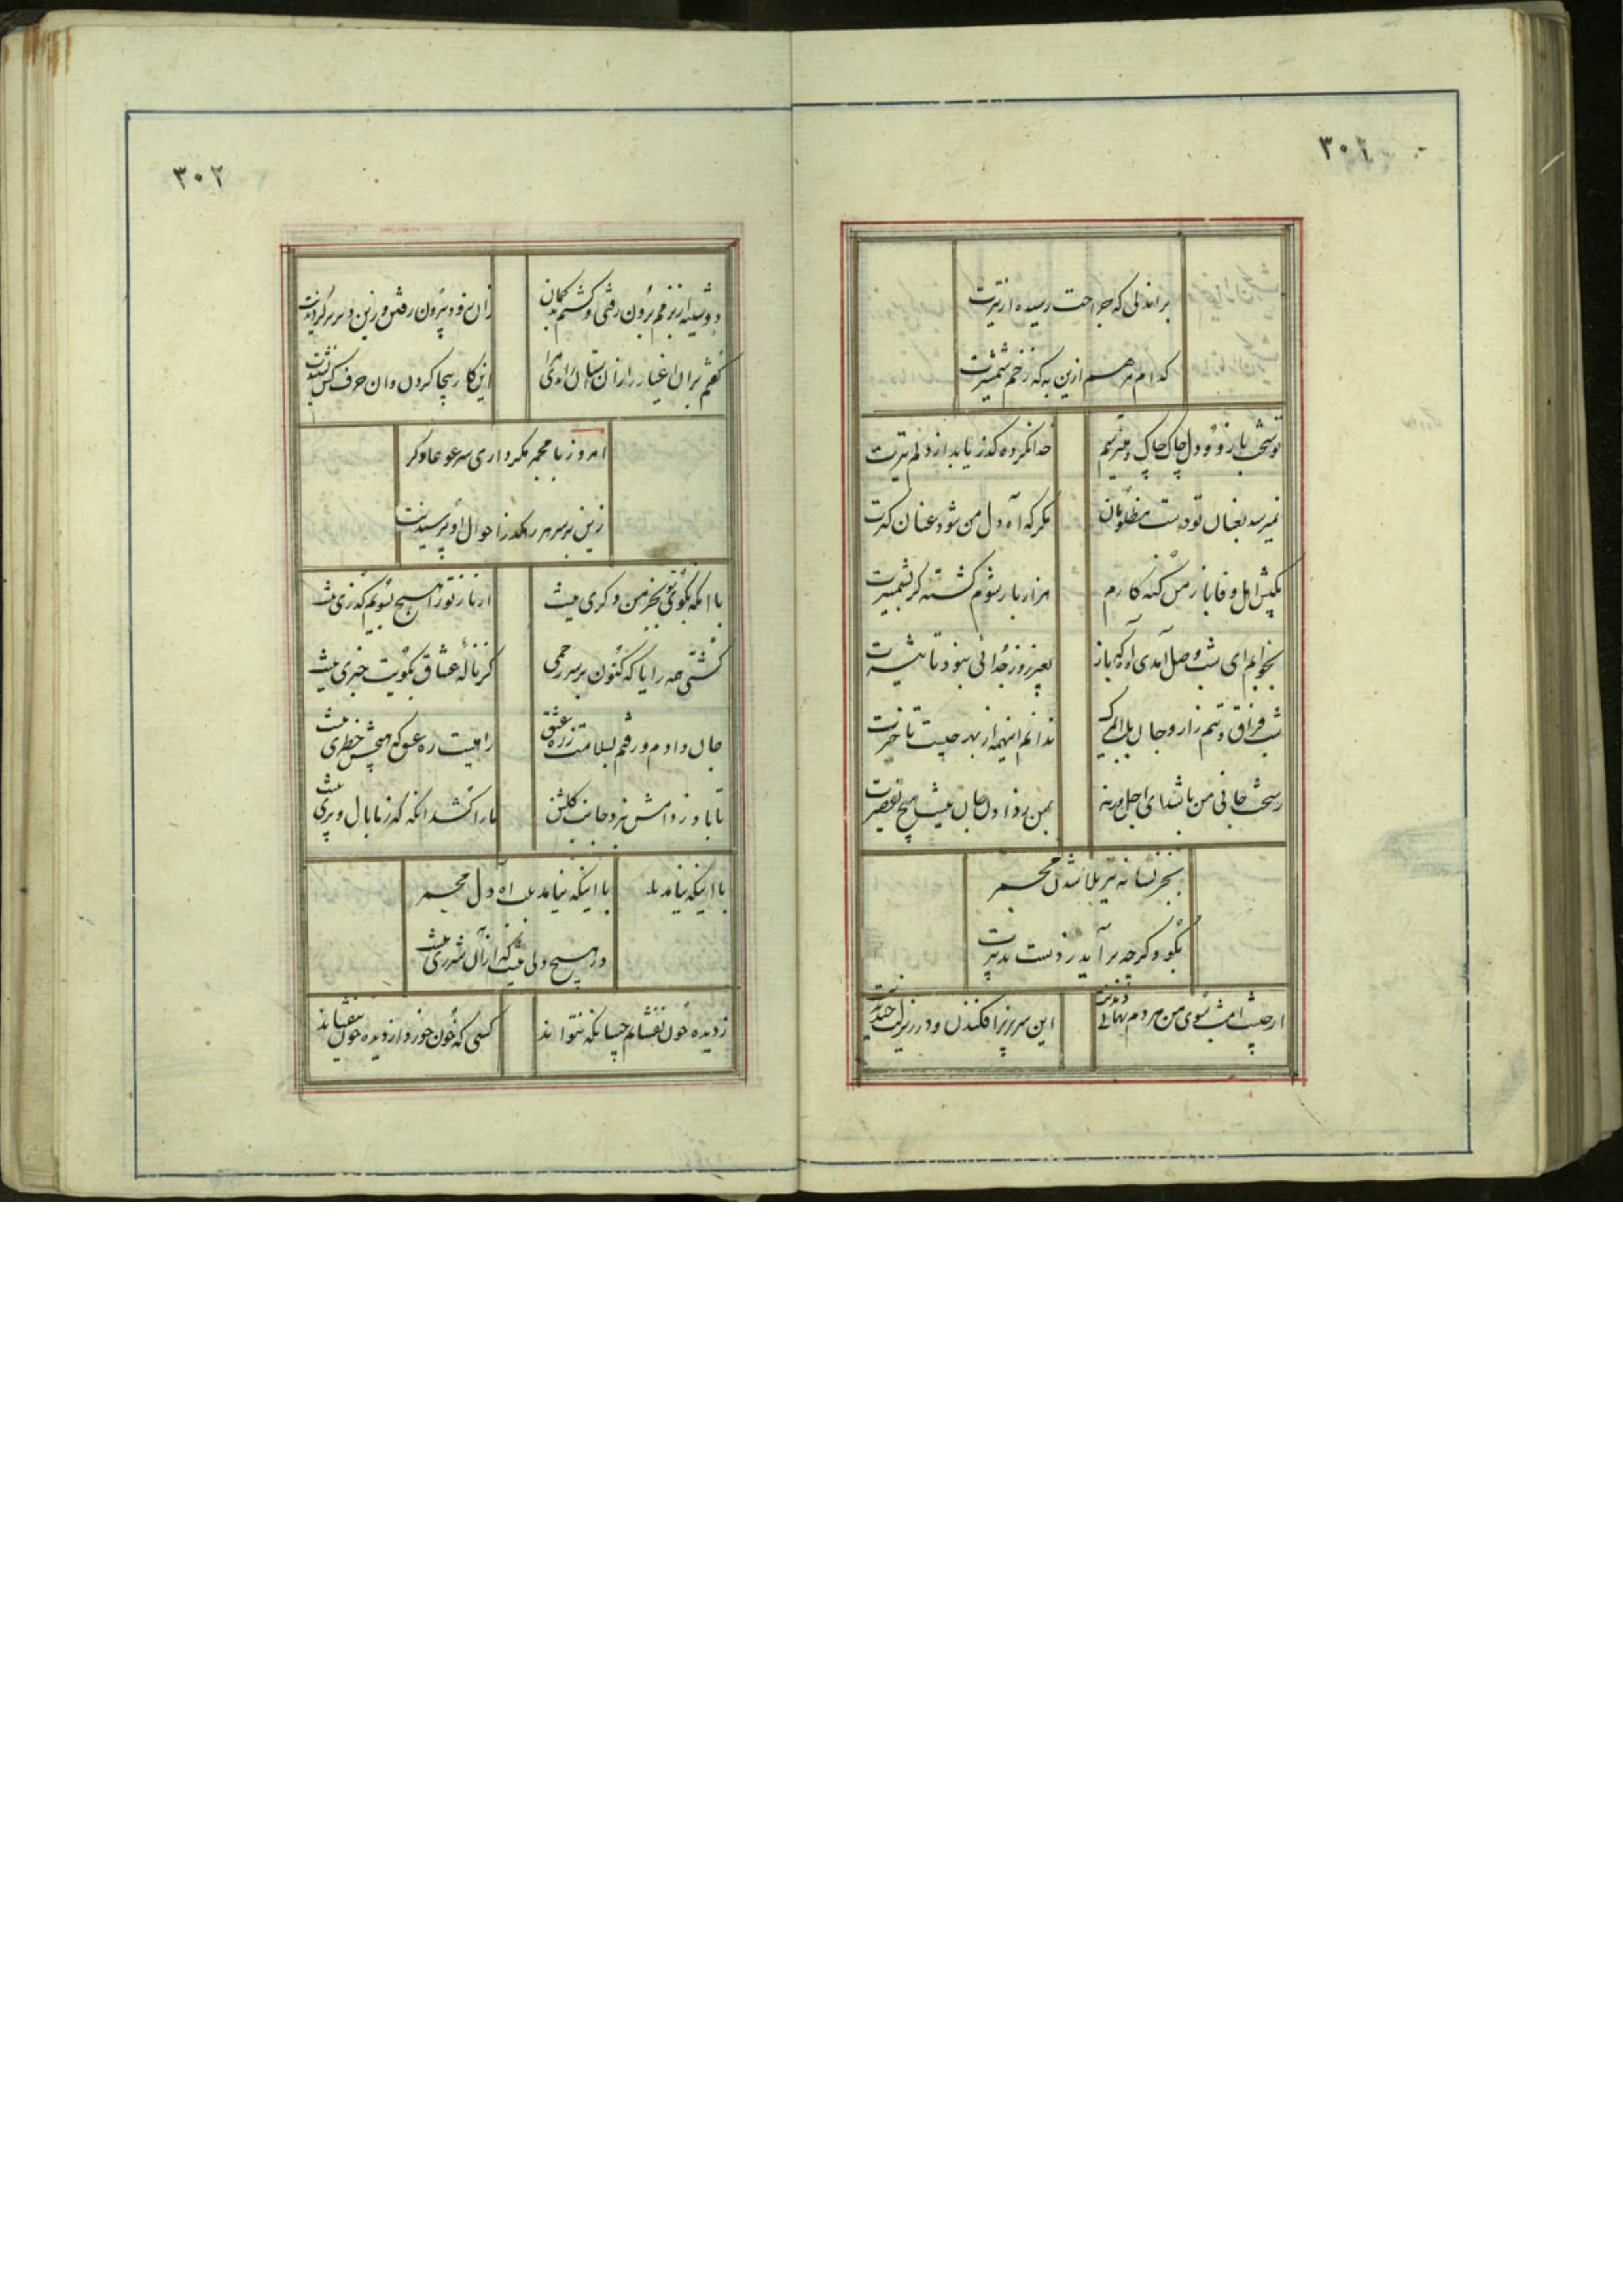 ۳۰۱
بر اندلی که جراحت رسیده از تیرت
کدام مرهم ازین به که زخم شمشیرت
تو سخت بازو و دل چاک چاک و میترسم
خدا نکرده گذر یابد از دلم تیرت
نمیرسد بعنان تو دست مظلومان
مگر که آه دل من شود عنان گیرت
بکیش اهل وفا باز من گنه کارم
هزار بار شوم کشته گر بشمشیرت
بخوابم ای شب وصل آمدی و که باز
بغیر روز جدائی نبود تا
شب فراق و تیم زار و جان بلب
ندانم اینهمه از بهر چیست تاخیرت
ز سخت جانی من باشد ای اجل ورنه
بمن ز دادن جان نیست هیچ تقصیرت
بجز نشانه تیر بلا شدن مجمر
بگو دگر چه بر آید ز دست تدبیرت
از چیست امشب سوی من هر دم نهانی دیدنت
این سر بزیر افکندن و در زیر لب خندیدنت
۳۰۲
دوشینه از بزمم برون رفتی و گشتم بدگمان
زان زود بیرون رفتن و زین دیر برگردیدنت
گفتم بران اغیار را زان آستان
این کار بیجا کردن و آن حرف کس نشنیدنت
امروز با مجمر مگر داری سر غوغا دگر
زین بر سر هر رهگذر احوال او پرسیدنت
با آنکه بکوی تو بجز من دگری نیست
از ناز تو را هیچ بسویم گذری نیست
گشتی همه را یا که کنون بر سر رحمی
کز ناله عشاق بکویت خبری نیست
جان دادم و رفتم بسلامت ز ره عشق
راهیست ره عشق که هیچش خطری نیست
تا باد ز دامش نبرد جانب گلشن
ما را کشد آنکه که ز ما بال و پری نیست
با اینکه نیامد بلب
با اینکه نیامد بلب آه دل مجمر
در هیچ دلی نیست که از آن شرری نیست
ز دیده خون نفشانم چسان که نتواند
کسی که خون خورد از دیده خون نیفشاند